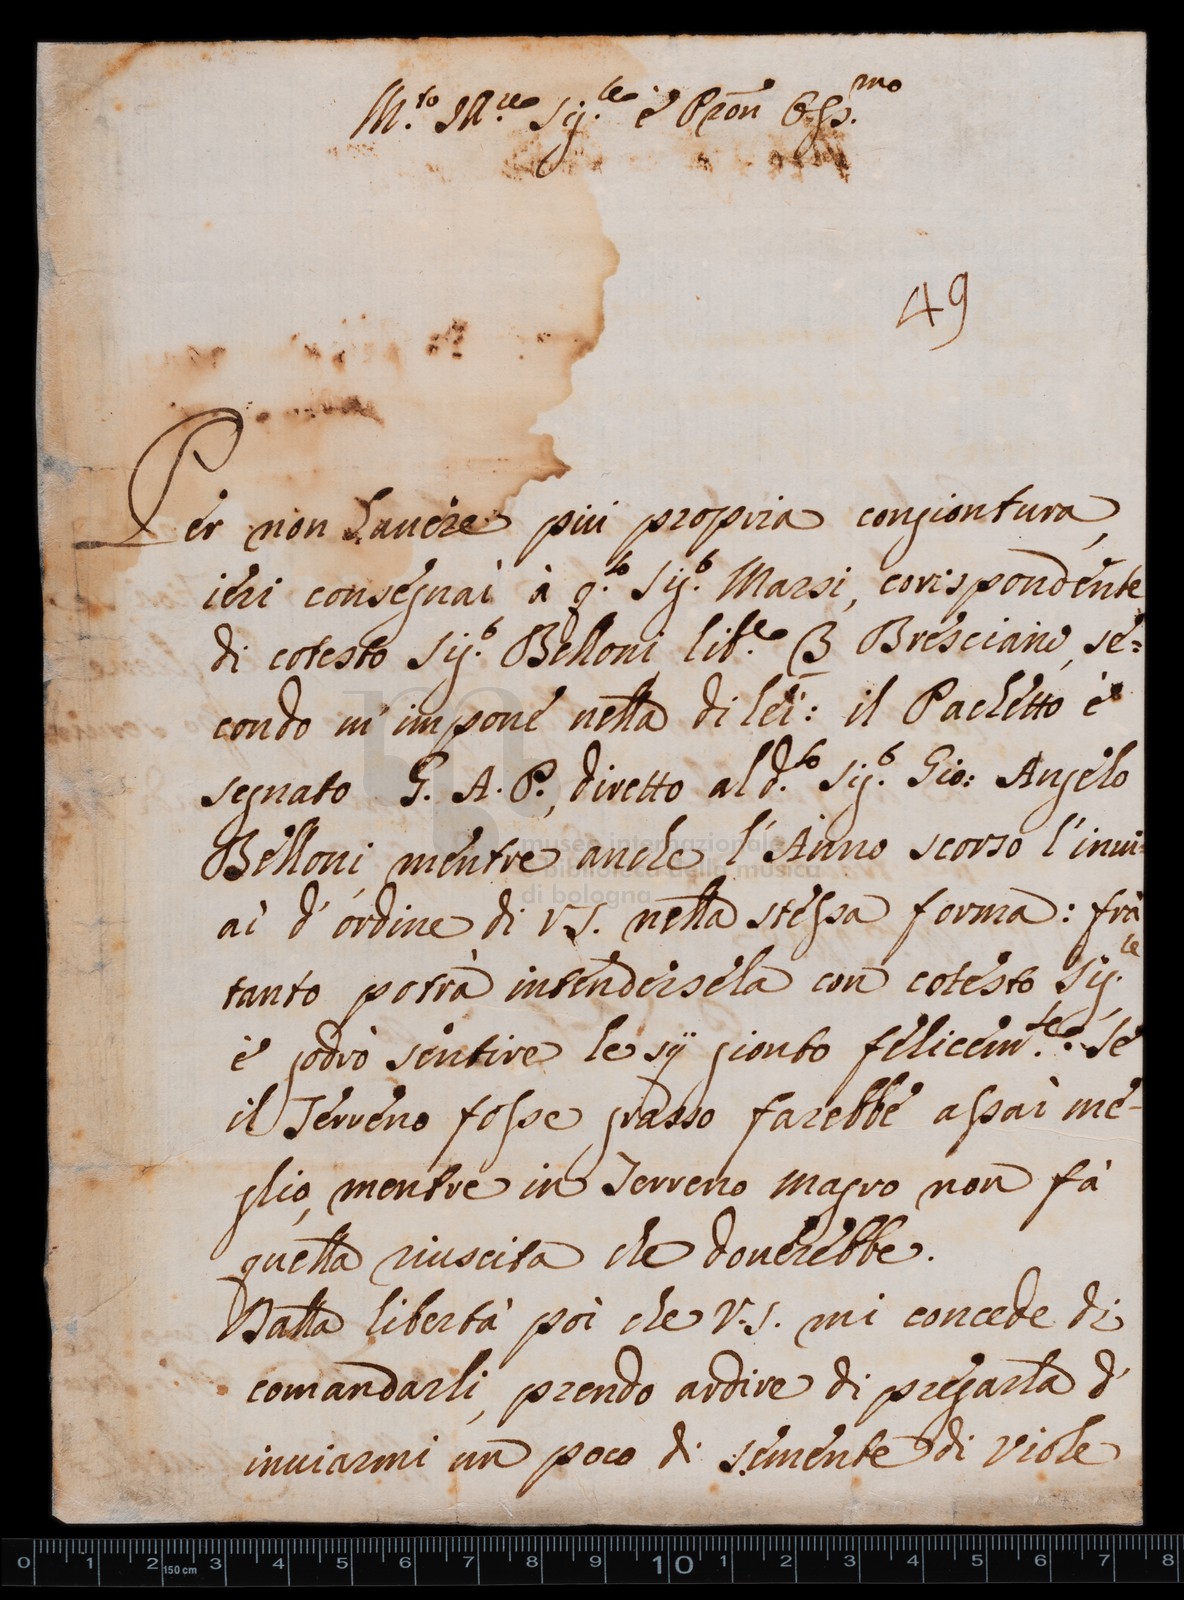 M.to Ill.re Sig.re è Pron Oss.mo
49
Per non hauere piu propria congiontura,
ieri consegnai à q.to Sig.r Marsi, corispondente
di cotesto Sig.r Belloni lib.e 3 Bresciane, se=
condo m' impone nella di lei: il Pachetto è
segnato G. A. P., diretto al d.to Sig.r Gio: Angelo
Belloni, mentre anche l' Anno scorso l' inui=
ai d' ordine di V.S. nella stessa forma: frà
tanto potrà intendersela con cotesto Sig.re
è godrò sentire le sÿ gionto felicem.te: Se
il Terreno fosse grasso farebbe assai me-
glio, mentre in Terreno magro non fà
quella riuscita che douerebbe.
Dalla libertà poi che V.S. mi concede di
comandarli, prendo ardire di pregarla d'
inuiarmi un poco di semente di viole
museo internazionale
e biblioteca della musica
di bologna
0 1 2 150 cm 3 4 5 6 7 8 9 10 1 2 3 4 5 6 7 8